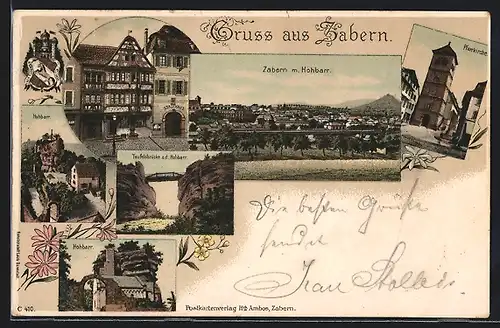 Gruss aus Zabern.
Zabern m. Hohbarr.
Pfarrkirche.
Hohbarr.
Teufelsbrücke a.d. Hohbarr.
Hohbarr.
Die besten Grüße
sendet
Frau
C 410.
Postkartenverlag Ambos, Zabern.